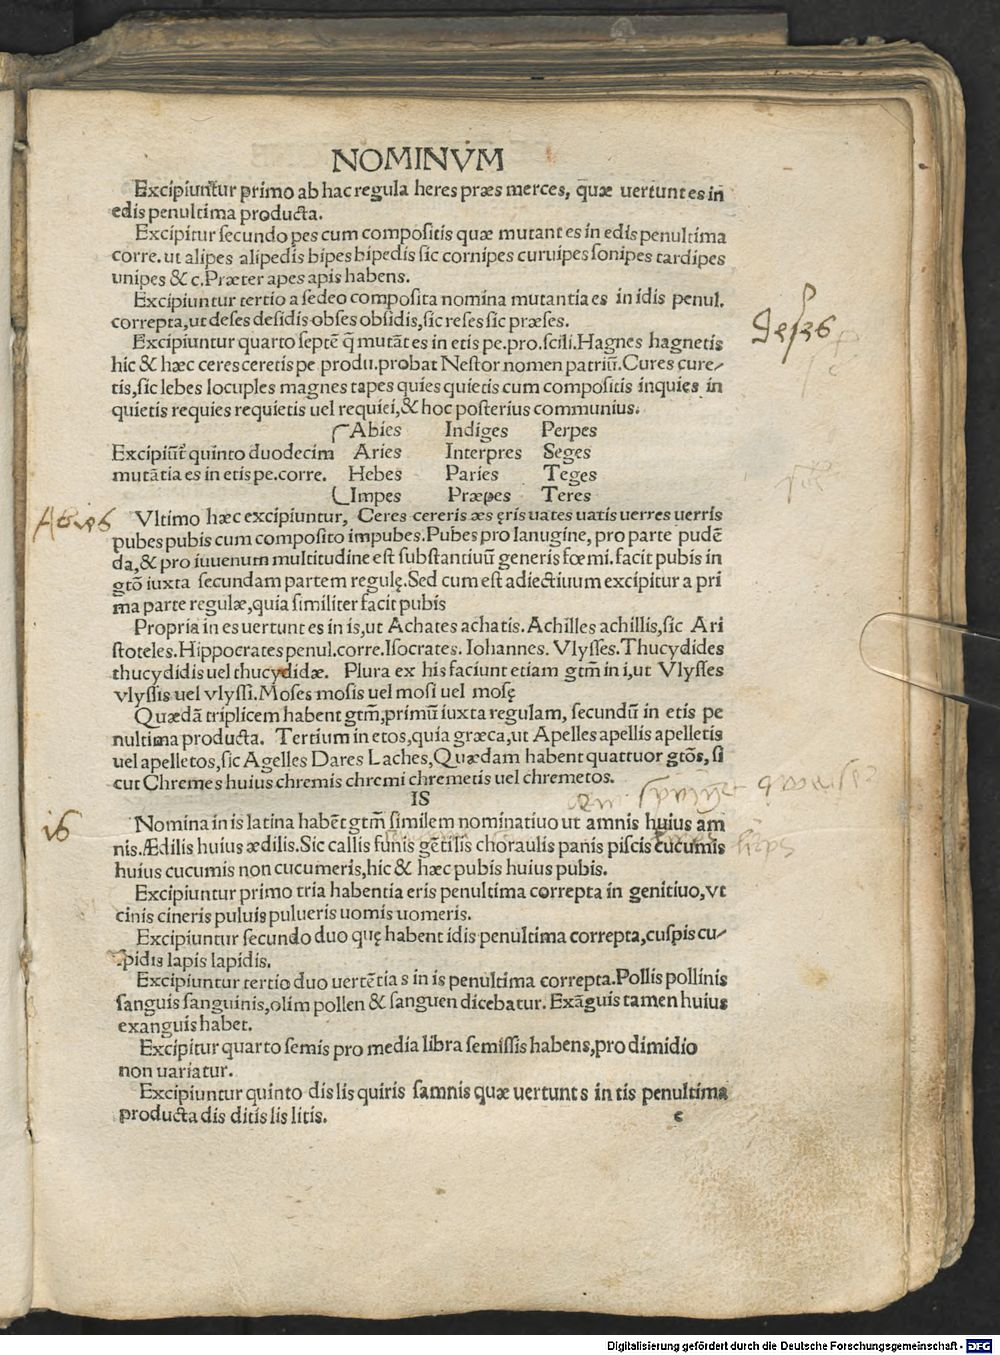 NOMINVM
Excipiuntur primo ab hac regula heres præs merces, quæ uertunt es in
edis penultima producta.
Excipitur secundo pes cum compositis quæ mutant es in edis penultima
corre. ut alipes alipedis bipes bipedis sic cornipes curuipes sonipes tardipes
unipes & c. Præter apes apis habens.
Excipiuntur tertio a sedeo composita nomina mutantia es in idis penul.
correpta, ut deses desidis obses obsidis, sic reses sic præses.
Deses
Excipiuntur quarto septē q̄ mutāt es in etis pe. pro. scili. Hagnes hagnetis
hic & hæc ceres ceretis pe produ. probat Nestor nomen patriū. Cures cure-
tis, sic lebes locuples magnes tapes quies quietis cum compositis inquies in
quietis requies requietis uel requiei, & hoc posterius communius.
Abies Indiges Perpes
Excipiūt᷑ quinto duodecim Aries Interpres Seges
mutātia es in etis pe. corre. Hebes Paries Teges
Impes Præpes Teres
Abies
Vltimo hæc excipiuntur, Ceres cereris æs ęris uates uatis uerres uerris
pubes pubis cum composito impubes. Pubes pro lanugine, pro parte pudē
da, & pro iuuenum multitudine est substantiuū generis fœmi. facit pubis in
gtō iuxta secundam partem regulę. Sed cum est adiectiuum excipitur a pri
ma parte regulæ, quia similiter facit pubis
Propria in es uertunt es in is, ut Achates achatis. Achilles achillis, sic Ari
stoteles. Hippocrates penul. corre. Isocrates. Iohannes. Vlysses. Thucydides
thucydidis uel thucydidæ. Plura ex his faciunt etiam gtm̄ in i, ut Vlysses
vlyssis uel vlyssi. Moses mosis uel mosi uel mosę
Quædā triplicem habent gtm̄, primū iuxta regulam, secundū in etis pe
nultima producta. Tertium in etos, quia græca, ut Apelles apellis apelletis
uel apelletos, sic Agelles Dares Laches, Quædam habent quattuor gtōs, si
cut Chremes huius chremis chremi chremetis uel chremetos.
IS
is
Nomina in is latina habēt gtm̄ similem nominatiuo ut amnis huius am
nis. Ædilis huius ædilis. Sic callis funis gētilis choraulis panis piscis cucumis
huius cucumis non cucumeris, hic & hæc pubis huius pubis.
Excipiuntur primo tria habentia eris penultima correpta in genitiuo, vt
cinis cineris puluis pulueris uomis uomeris.
Excipiuntur secundo duo quę habent idis penultima correpta, cuspis cu-
spidis lapis lapidis.
Excipiuntur tertio duo uertētia s in is penultima correpta. Pollis pollinis
sanguis sanguinis, olim pollen & sanguen dicebatur. Exāguis tamen huius
exanguis habet.
Excipitur quarto semis pro media libra semissis habens, pro dimidio
non uariatur.
Excipiuntur quinto dis lis quiris samnis quæ uertunt s in tis penultima
producta dis ditis lis litis.
c
Digitalisierung gefördert durch die Deutsche Forschungsgemeinschaft - DFG